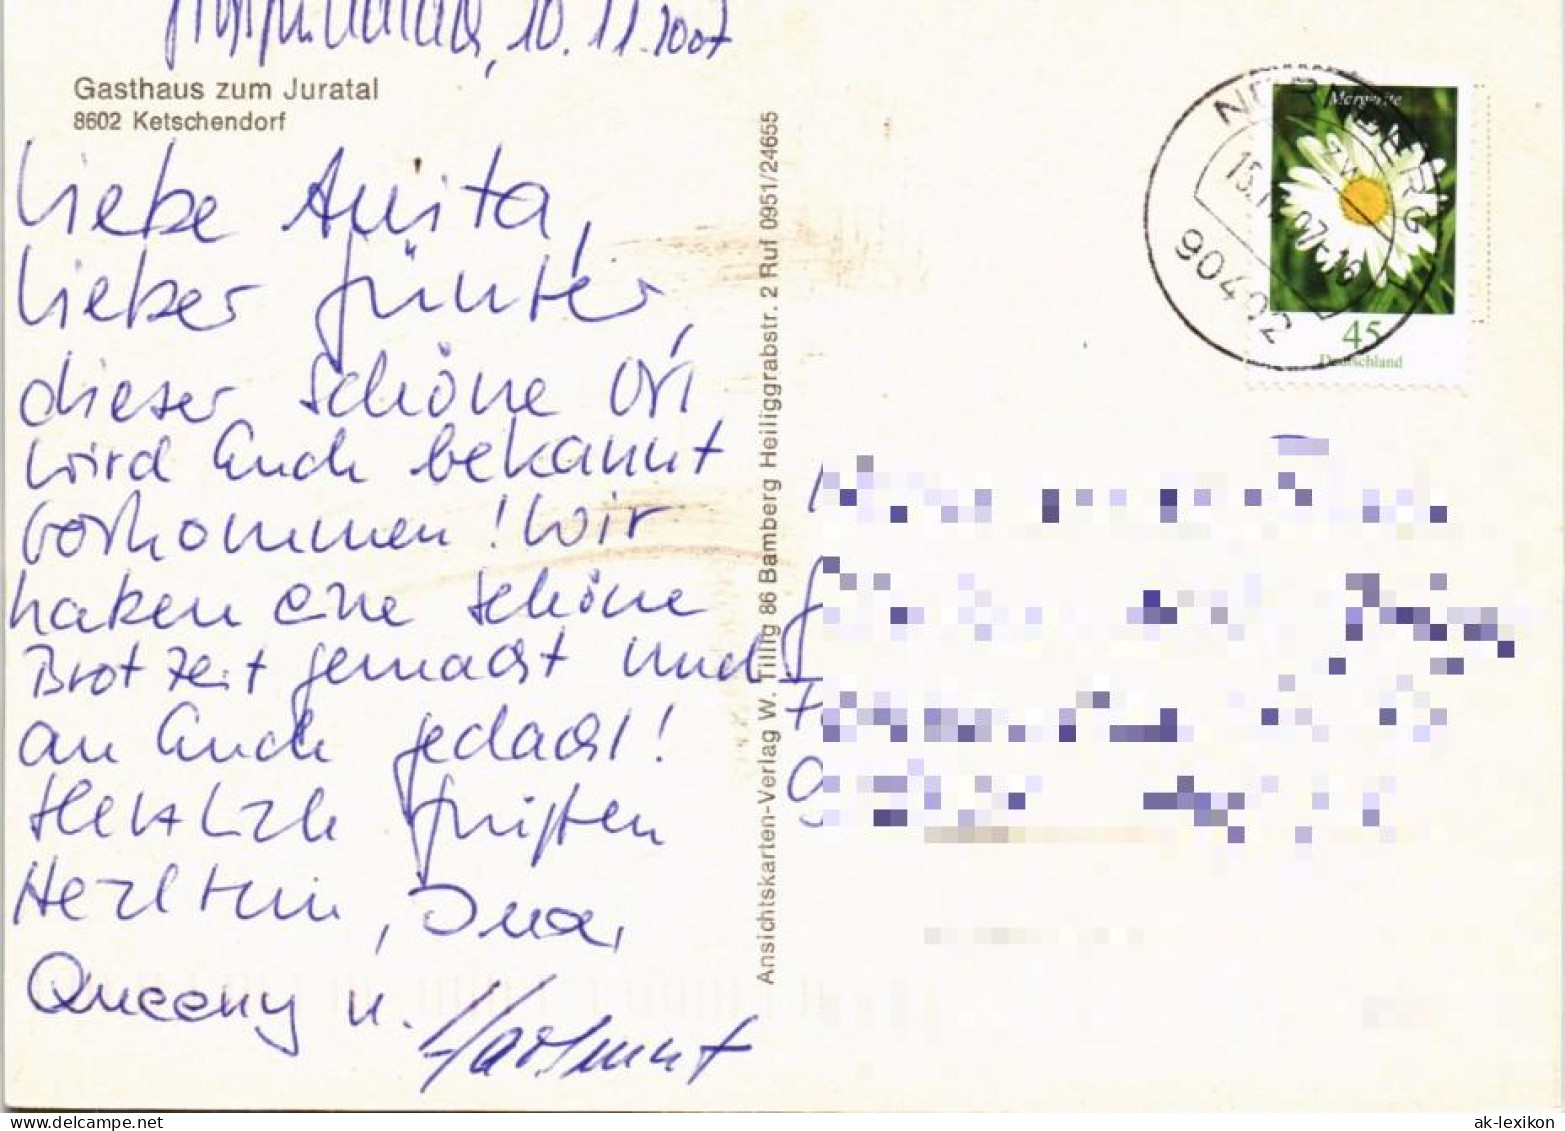 10.11.2007
Gasthaus zum Juratal
8602 Ketschendorf
Liebe Anita,
lieber Günter,
dieser schöne Ort
wird Euch bekannt
vorkommen! Wir
haben eine schöne
Brotzeit gemacht und
an Euch gedacht!
Herzliche Grüße
Ina,
Queeny u. Hartmut
Ansichtskarten-Verlag W. Tillig 86 Bamberg Heiliggrabstr. 2 Ruf 0951/24655
NÜRNBERG
15.11.07-16
90402
Margerite
45
Deutschland
ak-lexikon